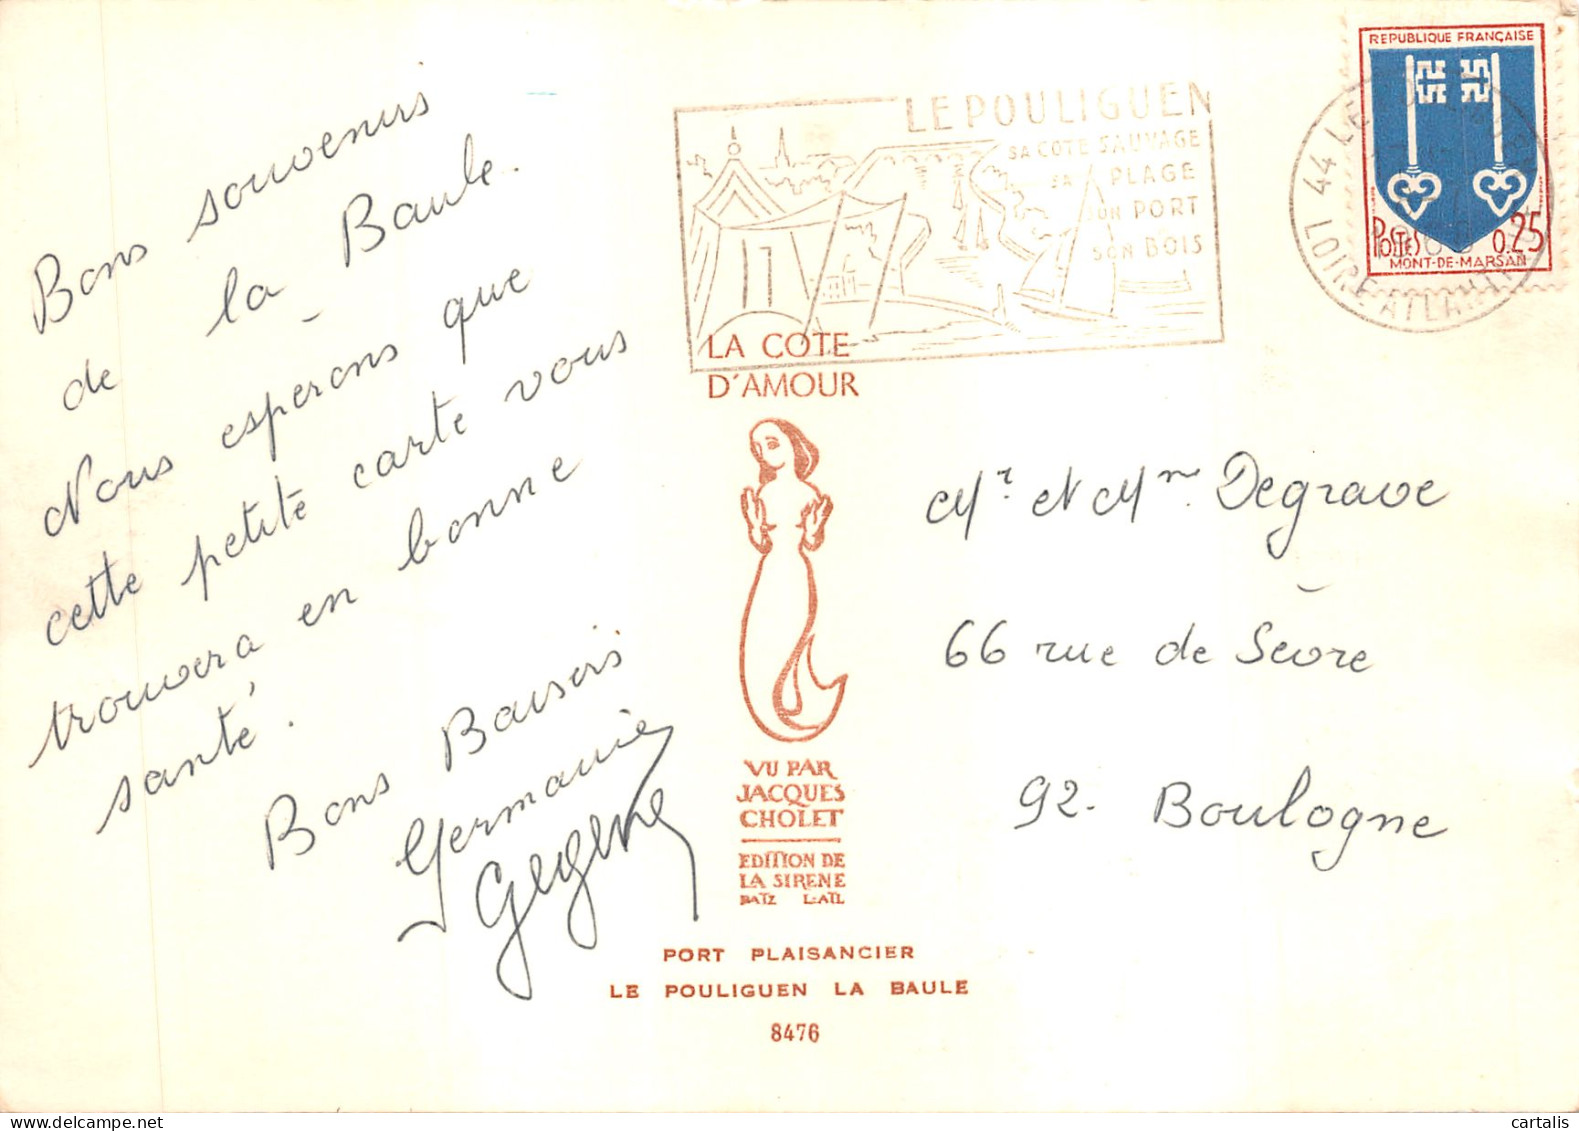 Bons souvenirs
de la Baule.
Nous esperons que
cette petite carte vous
trouvera en bonne
santé.
Bons Baisers
Germaine
LE POULIGUEN
SA COTE SAUVAGE
SA PLAGE
SON PORT
SON BOIS
REPUBLIQUE FRANÇAISE
POSTES 0.25
MONT-DE-MARSAN
44 LE
LOIRE ATLANTIQUE
LA COTE
D'AMOUR
VU PAR
JACQUES
CHOLET
EDITION DE
LA SIRENE
BATZ L-ATL
PORT PLAISANCIER
LE POULIGUEN LA BAULE
8476
Mr et Mme Degrave
66 rue de Sèvre
92- Boulogne
cartalis